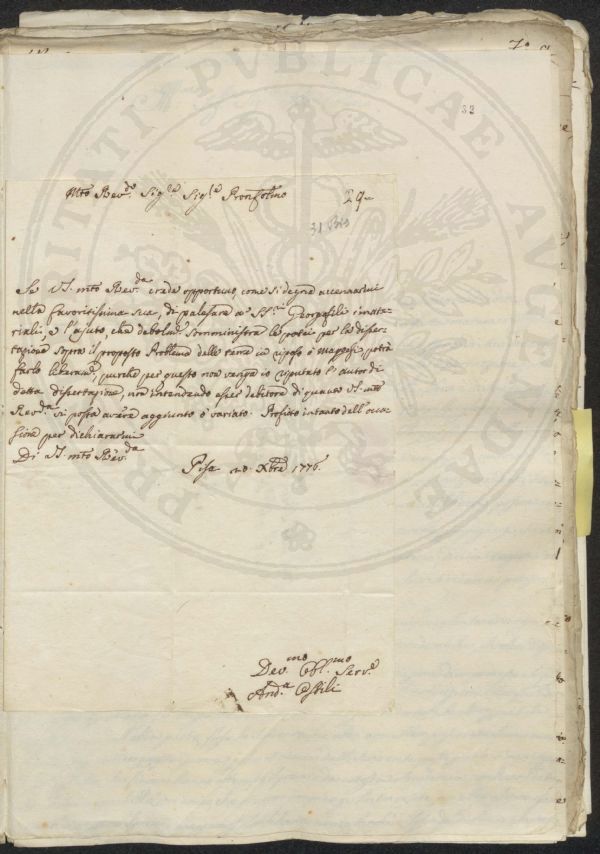 32
Mto Revdo Sigre Sigre Pronfolmo
29
31 Bis
Se V.S. mto Revda crede opportuno, come si degna accennarmi
nella favoritissima sua, di palesare a' SSri Georgofili i mate-
riali, e l'ajuto, che debolmte somministrai le potei per la disser-
tazione sopra il proposto Problema delle terre in riposo o maggesi, potrà
farlo liberamte, purchè per questo non venga io riputato l'autor di
detta dissertazione, non intendendo esser debitore di quanto V.S. mto
Revda vi possa avere aggiunto o variato. Profitto intanto dell'occa-
sione per dichiararmi
Di V.S. mto Revda
Pisa 20. Xbre 1776.
Devmo Obblmo Servre
Anda
PROSPERITATI PVBLICAE AVGENDAE